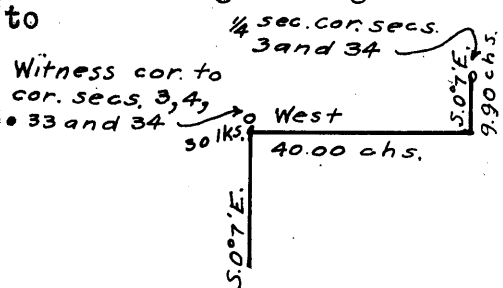 to
1/4 sec. cor. secs.
3 and 34
Witness cor. to
cor. secs. 3, 4,
• 33 and 34
30 lks.
West
40.00 chs.
S. 0° 7' E.
9.90 chs.
S. 0° 7' E.